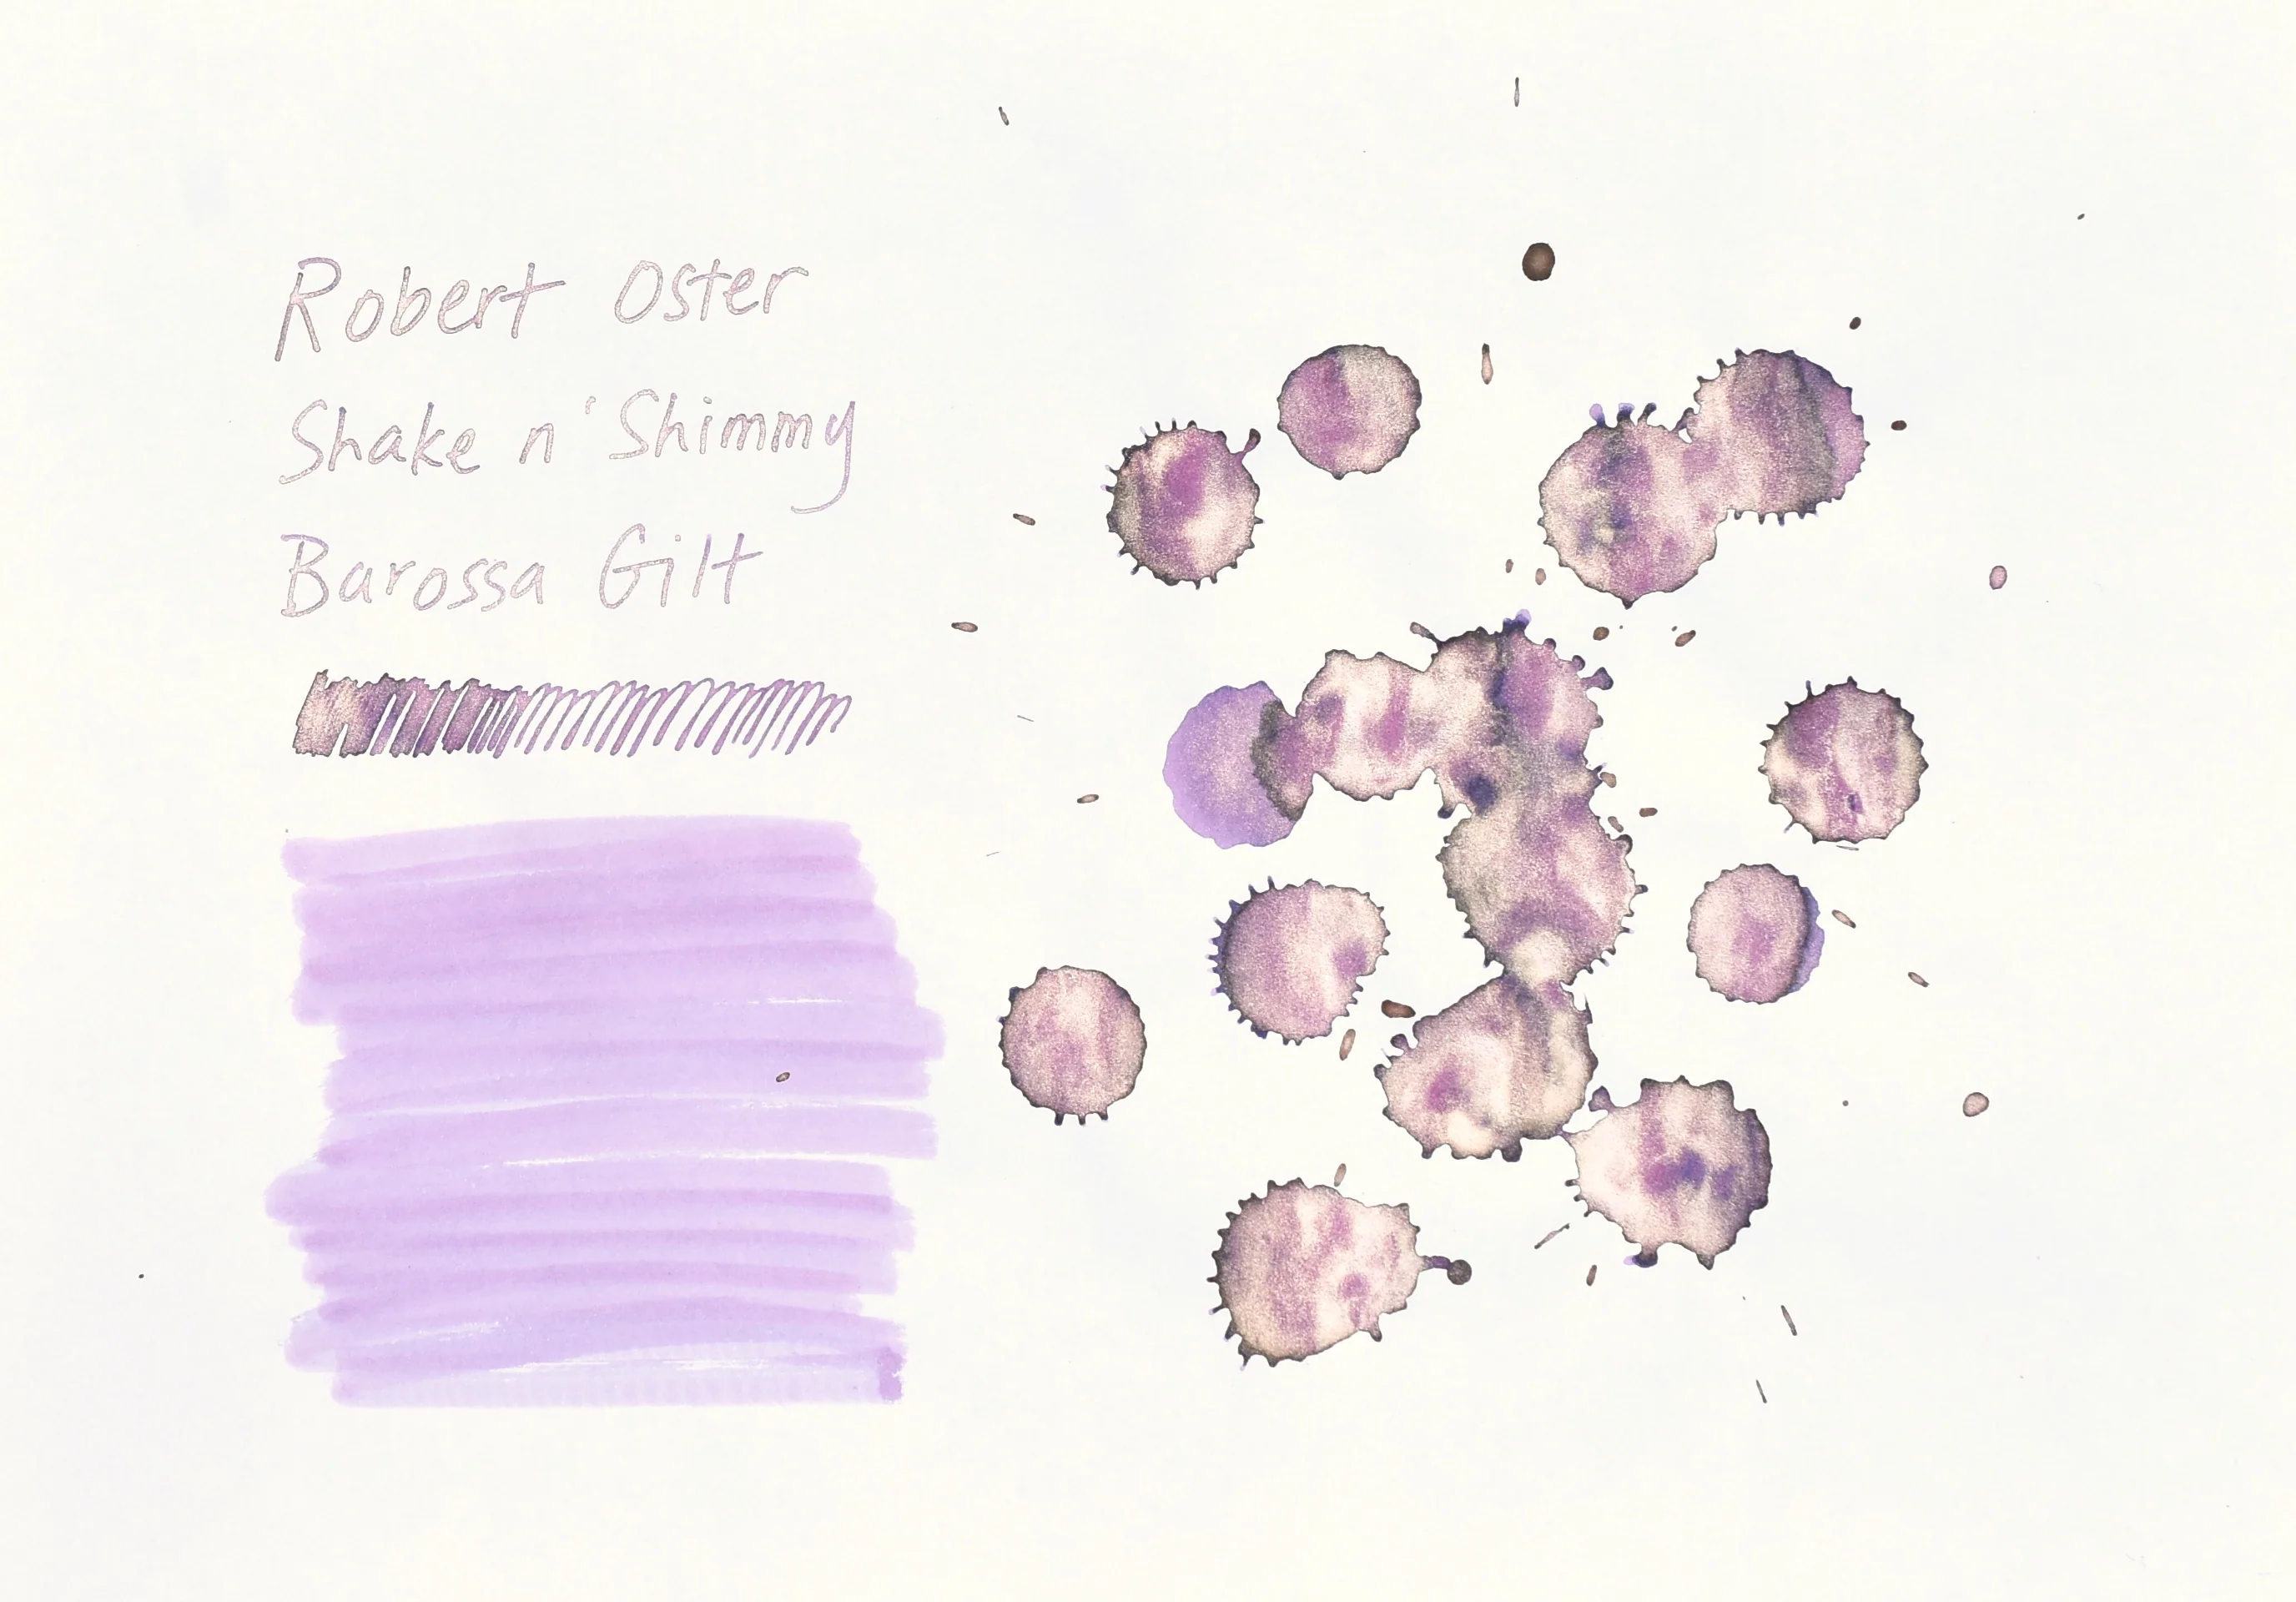 Robert Oster
Shake n' Shimmy
Barossa Gilt